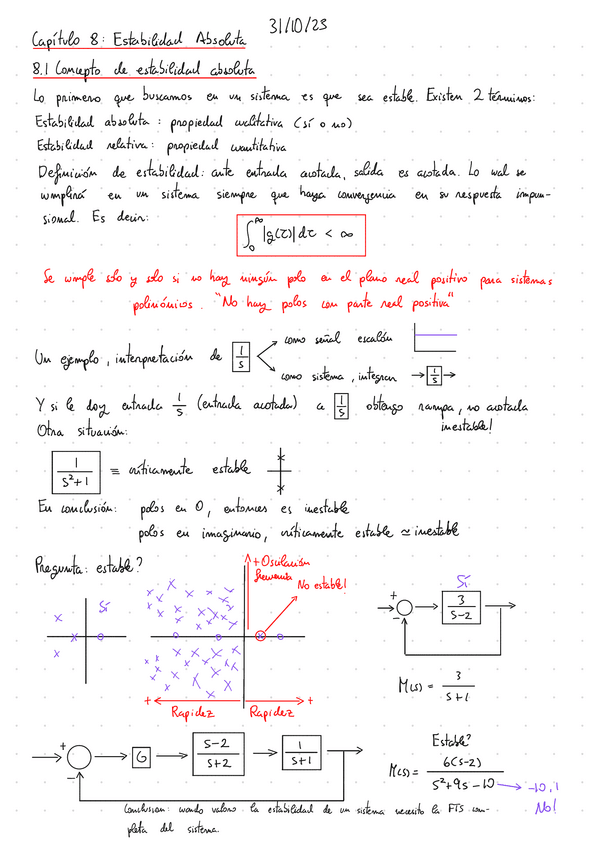 31/10/23
Capítulo 8: Estabilidad Absoluta
8.1 Concepto de estabilidad absoluta
Lo primero que buscamos en un sistema es que sea estable. Existen 2 términos:
Estabilidad absoluta: propiedad cualitativa (sí o no)
Estabilidad relativa: propiedad cuantitativa
Definición de estabilidad: ante entrada acotada, salida es acotada. Lo cual se
cumplirá en un sistema siempre que haya convergencia en su respuesta impul-
sional. Es decir:
∫₀^∞ |g(τ)| dτ < ∞
Se cumple solo y solo si no hay ningún polo en el plano real positivo para sistemas
polinómicos. "No hay polos con parte real positiva"
como señal escalón
Un ejemplo, interpretación de 1/s
como sistema, integran → 1/s →
Y si le doy entrada 1/s (entrada acotada) a 1/s obtengo rampa, no acotada
inestable!
Otra situación:
1/(s²+1) ≡ críticamente estable
En conclusión: polos en 0, entonces es inestable
polos en imaginario, críticamente estable ≃ inestable
Pregunta: estable?
+ Oscilación
frecuencia
No estable!
Sí
Sí
+ - 3/(s-2)
M(s) = 3/(s+1)
+ Rapidez Rapidez +
Estable?
+ - G (s-2)/(s+2) 1/(s+1)
M(s) = 6(s-2)/(s²+9s-10) → -10, 1
No!
Conclusion: cuando valoro la estabilidad de un sistema necesito la FTS com-
pleta del sistema.